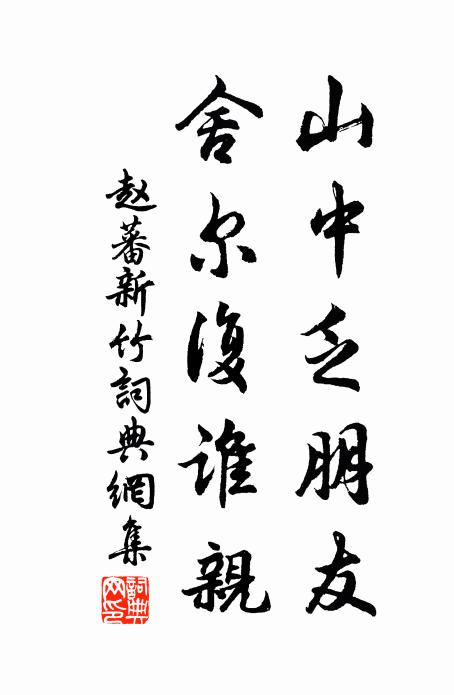 山中乏朋友
舍尔復谁親
赵蕃新竹詞典網集
詞典网印